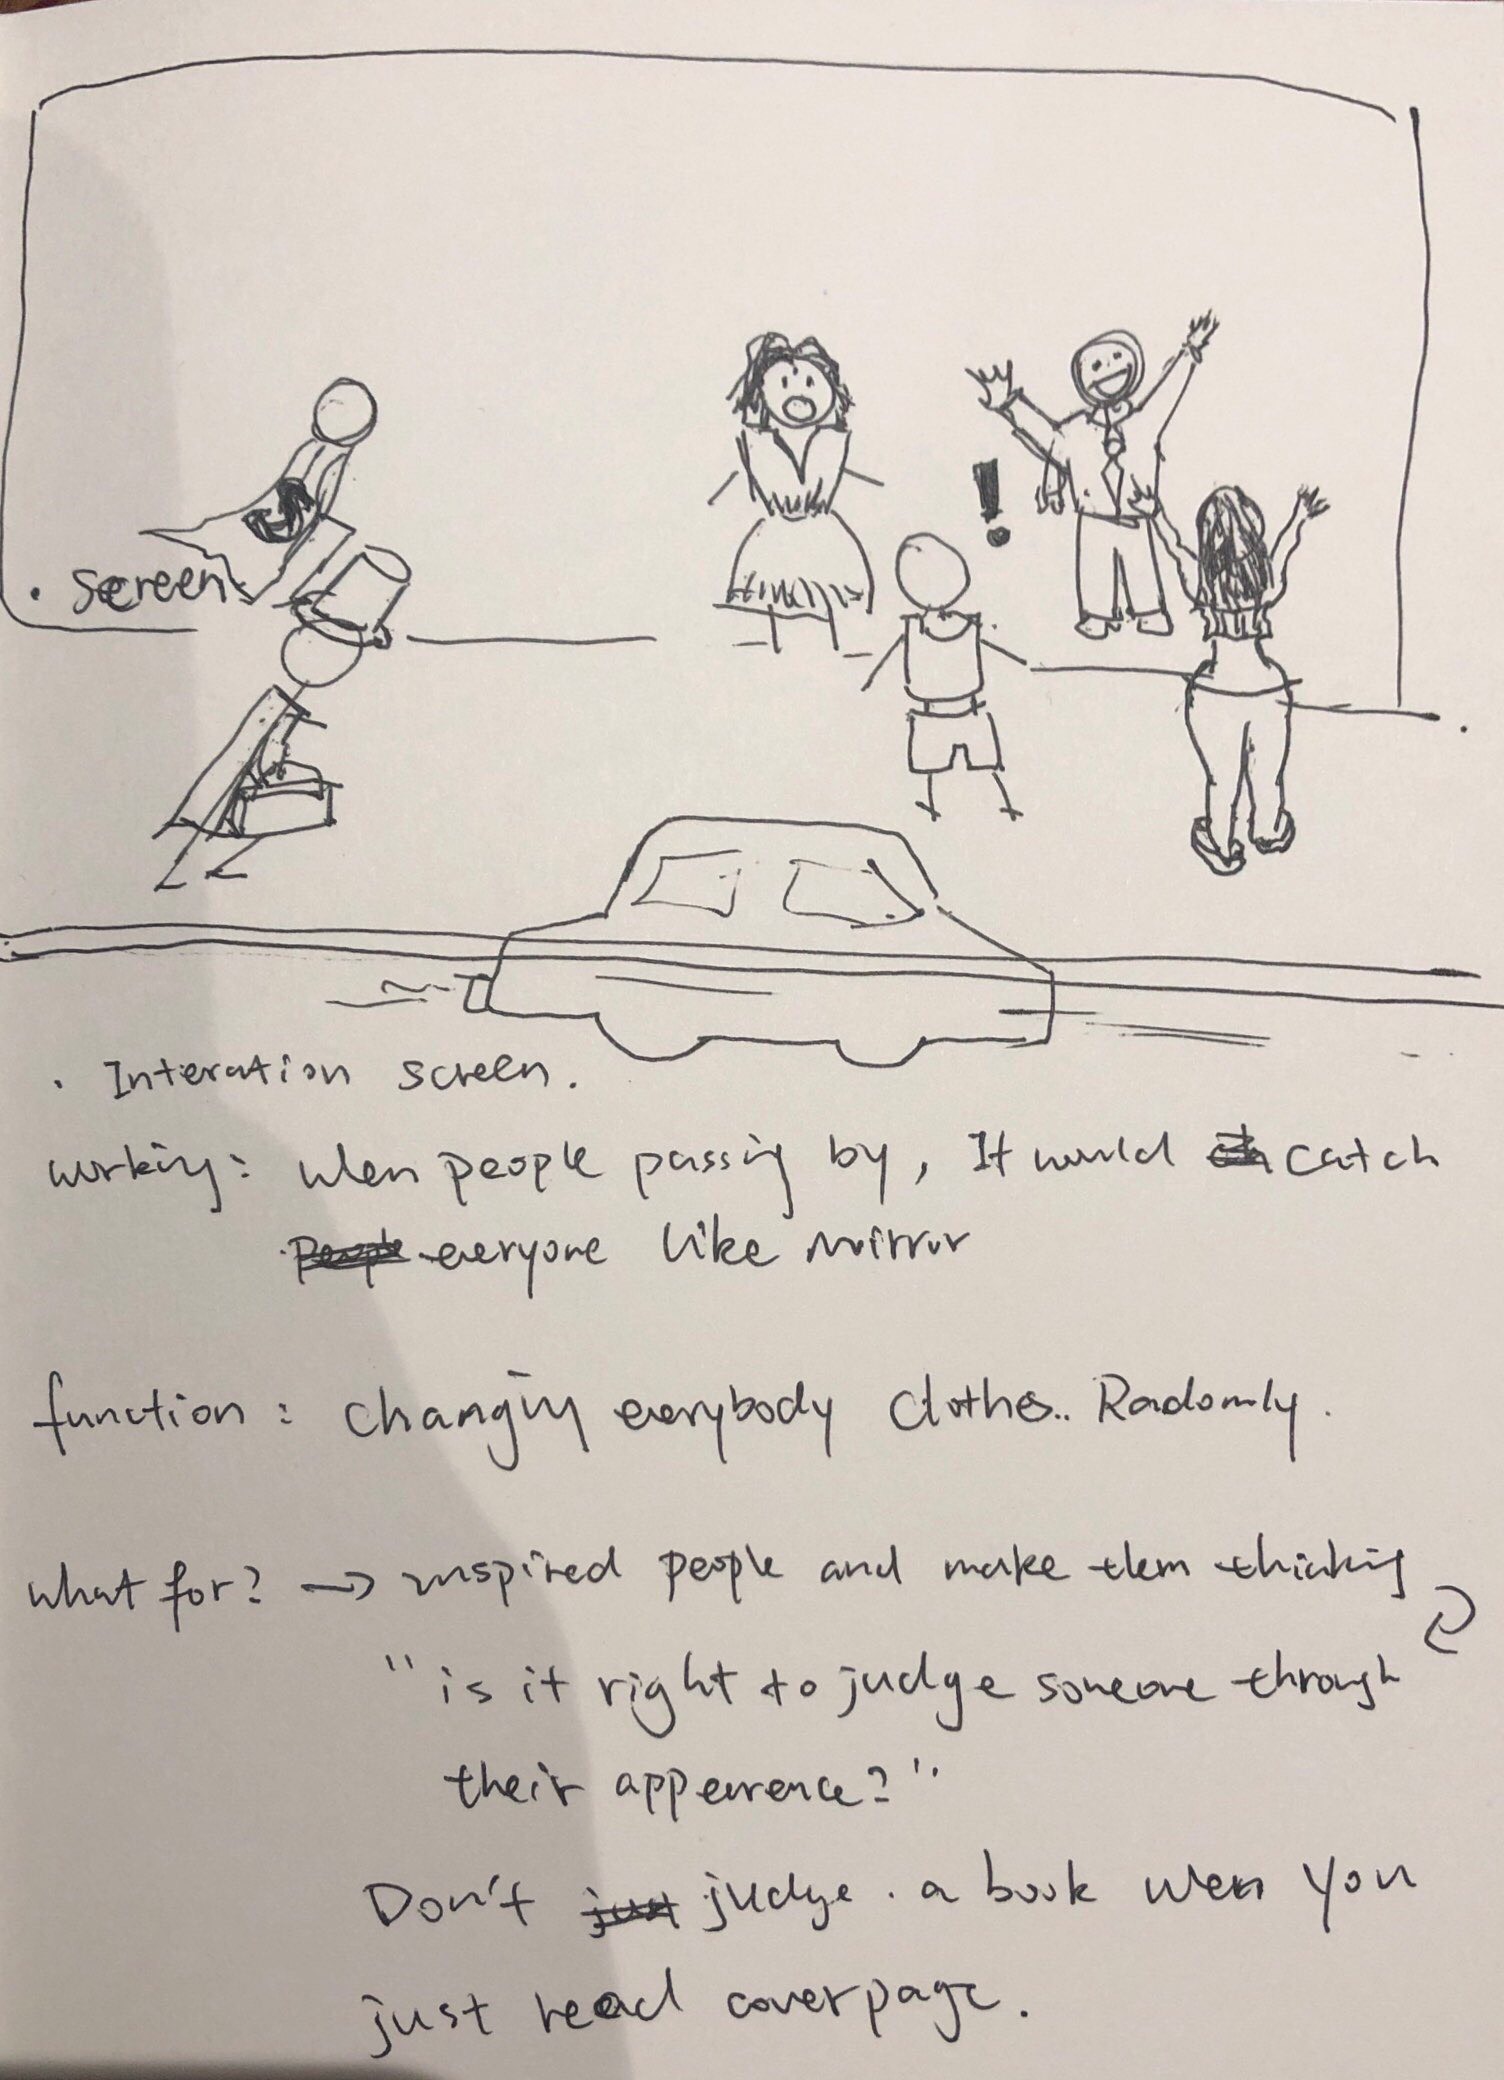 . screen
!
. Interation screen.
working: when people passing by, It would catch
everyone like mirror
function: changing everybody clothes.. Radomly.
what for? → inspired people and make them thinking
"is it right to judge someone through
their appearence?"
Don't just judge. a book when you
just read cover page.